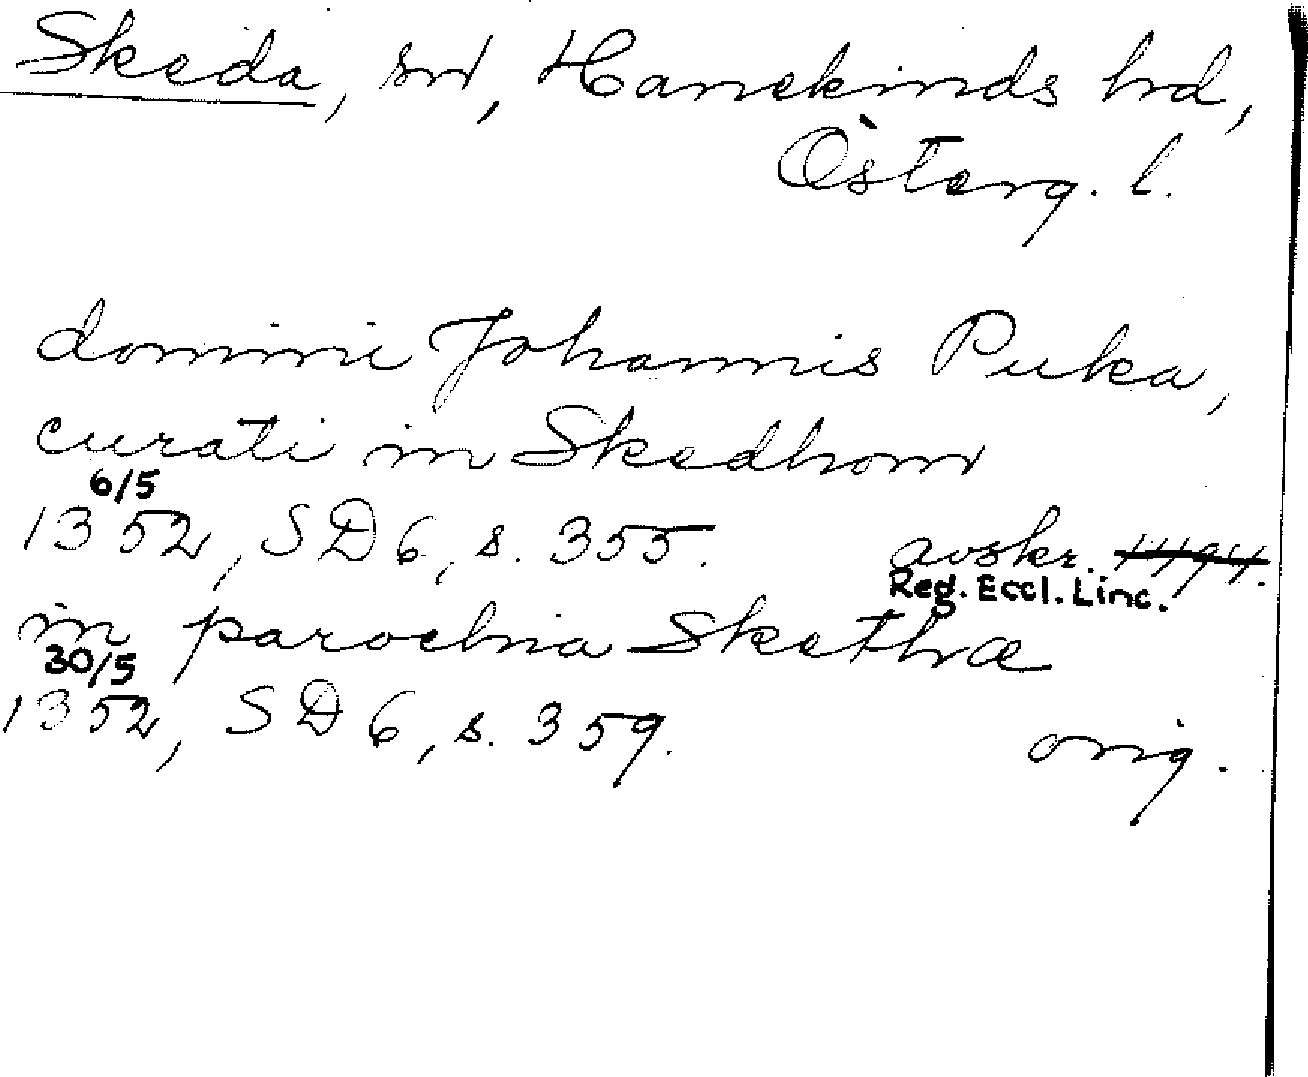 Skeda, sn, Hanekinds hd,
Österg. l.
domini Johannis Puka,
curati in Skedhom
6/5
1352, SD 6, s. 355. avskr.
Reg. Eccl. Linc.
in parochia Skethæ
30/5
1352, SD 6, s. 359. orig.